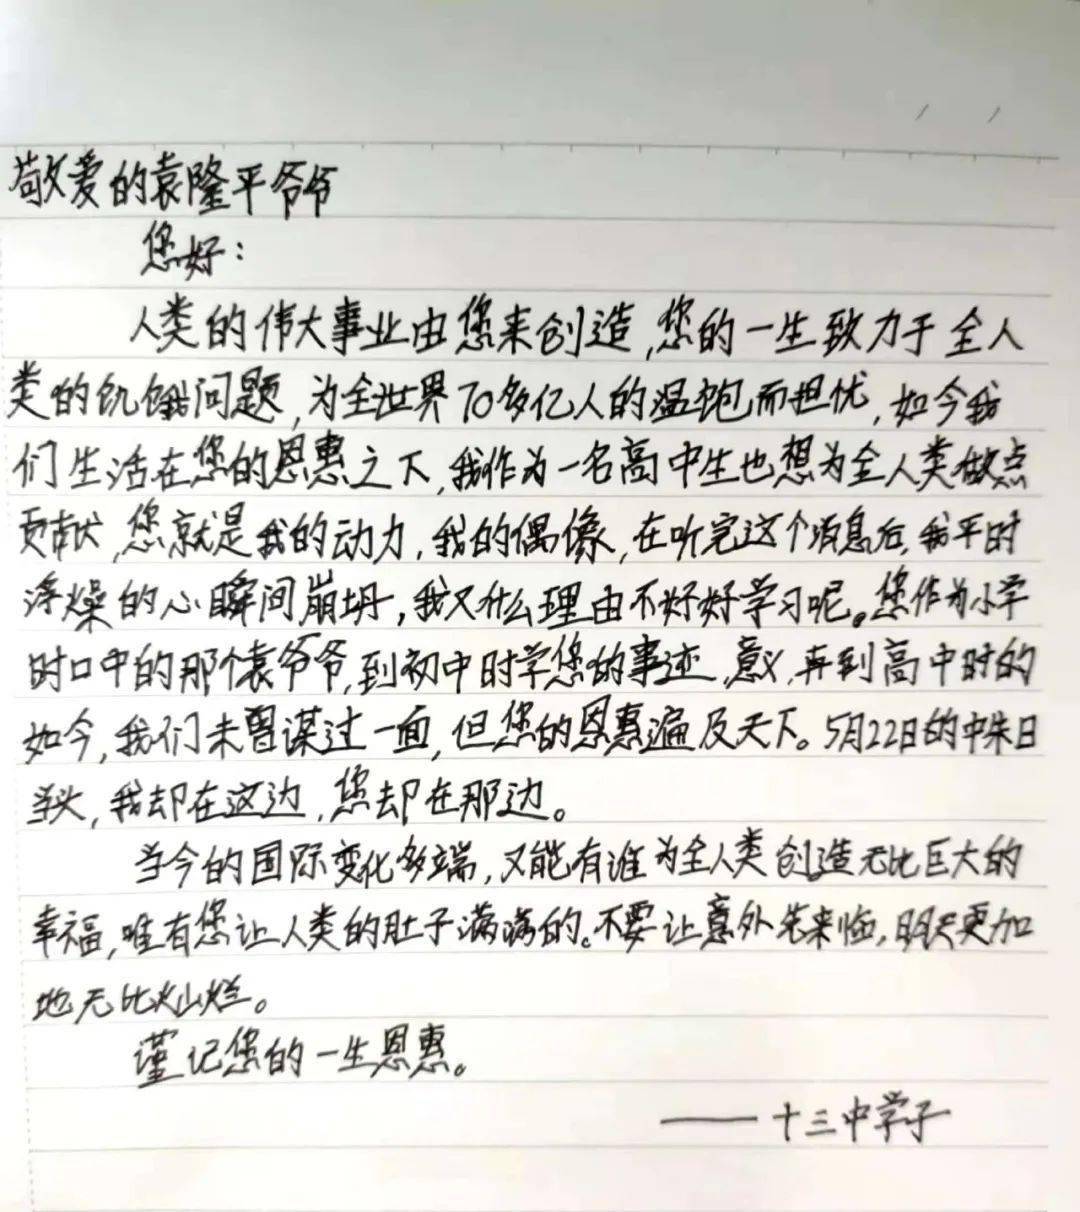 敬爱的袁隆平爷爷
您好：
人类的伟大事业由您来创造,您的一生致力于全人
类的饥饿问题,为全世界70多亿人的温饱而担忧,如今我
们生活在您的恩惠之下,我作为一名高中生也想为全人类做点
贡献,您就是我的动力,我的偶像,在听完这个消息后,我平时
浮燥的心瞬间崩坍,我又什么理由不好好学习呢。您作为小学
时口中的那个袁爷爷,到初中时学您的事迹,意义,再到高中时的
如今,我们未曾谋过一面,但您的恩惠遍及天下。5月22日的中朱日
当头,我却在这边,您却在那边。
当今的国际变化多端,又能有谁为全人类创造无比巨大的
幸福,唯有您让人类的肚子满满的。不要让意外先来临,明天更加
地无比灿烂。
谨记您的一生恩惠。
——十三中学子